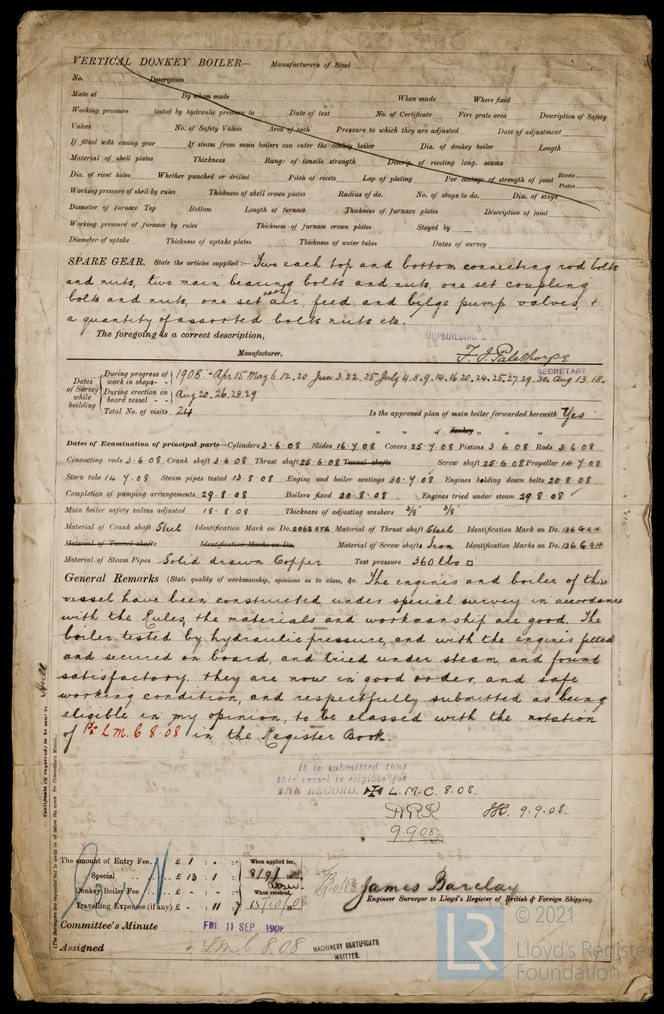 VERTICAL DONKEY BOILER— Manufacturers of Steel
No. Description
Made at By whom made When made Where fixed
Working pressure tested by hydraulic pressure to Date of test No. of Certificate Fire grate area Description of Safety
Valves No. of Safety Valves Area of each Pressure to which they are adjusted Date of adjustment
If fitted with easing gear If steam from main boilers can enter the donkey boiler Dia. of donkey boiler Length
Material of shell plates Thickness Range of tensile strength Descrip. of riveting long. seams
Dia. of rivet holes Whether punched or drilled Pitch of rivets Lap of plating Per centage of strength of joint Rivets Plates
Working pressure of shell by rules Thickness of shell crown plates Radius of do. No. of stays to do. Dia. of stays
Diameter of furnace Top Bottom Length of furnace Thickness of furnace plates Description of joint
Working pressure of furnace by rules Thickness of furnace crown plates Stayed by
Diameter of uptake Thickness of uptake plates Thickness of water tubes Dates of survey
SPARE GEAR. State the articles supplied:— Two each top and bottom connecting rod bolts
and nuts, two main bearing bolts and nuts, one set coupling
bolts and nuts, one set each air, feed and bilge pump valves, +
a quantity of assorted bolts nuts etc.
The foregoing is a correct description,
SHIPBUILDING
Manufacturer. F. J. Palethorpe
SECRETARY
Dates of Survey while building
During progress of work in shops - - 1908 - Apr 15 May 6. 12. 20 June 3. 22. 25 July 4. 8. 9. 14. 16 20. 24. 25. 27. 29. 30. Aug 13. 18.
During erection on board vessel - - - Aug 20. 26. 28. 29
Total No. of visits 24 Is the approved plan of main boiler forwarded herewith Yes
" " " donkey " " "
Dates of Examination of principal parts—Cylinders 3 . 6 . 08 Slides 16 . 7 . 08 Covers 25 . 7 08 Pistons 3 6 . 08 Rods 3 6 . 08
Connecting rods 3 . 6 . 08 Crank shaft 3 . 6 . 08 Thrust shaft 25 . 6 . 08 Tunnel shafts Screw shaft 25 . 6 . 08 Propeller 14 7 . 08
Stern tube 14 7 . 08 Steam pipes tested 13 . 8 . 08 Engine and boiler seatings 30 . 7 . 08 Engines holding down bolts 20 . 8 . 08
Completion of pumping arrangements 29 . 8 . 08 Boilers fixed 20 . 8 . 08 Engines tried under steam 29 . 8 . 08
Main boiler safety valves adjusted 18 . 8 . 08 Thickness of adjusting washers 3/8 3/8
Material of Crank shaft Steel Identification Mark on Do. 2062 ATG Material of Thrust shaft Steel Identification Mark on Do. 136 G.A.H
Material of Tunnel shafts Identification Marks on Do. Material of Screw shafts Iron Identification Marks on Do. 136 G.A.H
Material of Steam Pipes Solid drawn Copper Test pressure 360 lbs □
General Remarks (State quality of workmanship, opinions as to class, &c. The engines and boiler of this
vessel have been constructed under special survey in accordance
with the Rules, the materials and workmanship are good. The
boiler tested by hydraulic pressure, and with the engines fitted
and secured on board, and tried under steam, and found
satisfactory. They are now in good order, and safe
working condition, and respectfully submitted as being
eligible in my opinion, to be classed with the notation
of ✠ L.M.C 8.08 in the Register Book.
It is submitted that
this vessel is eligible for
THE RECORD. ✠ L.M.C. 8.08.
9.9.08 9.9.08.
The amount of Entry Fee. . £ 1 : - : When applied for.
Special . . . . £ 13 : 1 : 8/9/
Donkey Boiler Fee . . . £ - : - : When received.
Travelling Expenses (if any) £ - : 11 : 15/10/08
James Barclay
Engineer Surveyor to Lloyd's Register of British & Foreign Shipping.
Committee's Minute FRI. 11 SEP 1908
Assigned + L.M.C. 8.08 MACHINERY CERTIFICATE
WRITTEN.
Certificate (if required) to be sent to Hull
© 2021
LR
Lloyd's Register
Foundation